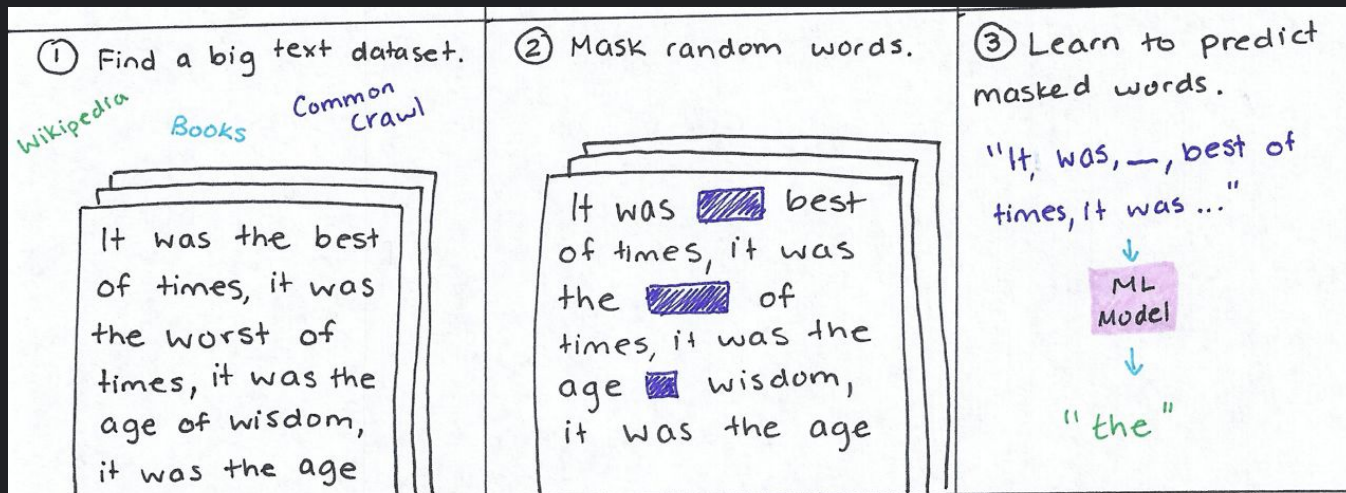 ① Find a big text dataset.
Wikipedia
Books
Common
crawl
It was the best
of times, it was
the worst of
times, it was the
age of wisdom,
it was the age
② Mask random words.
It was best
of times, it was
the of
times, it was the
age wisdom,
it was the age
③ Learn to predict
masked words.
"It, was, __, best of
times, it was ..."
ML
Model
"the"